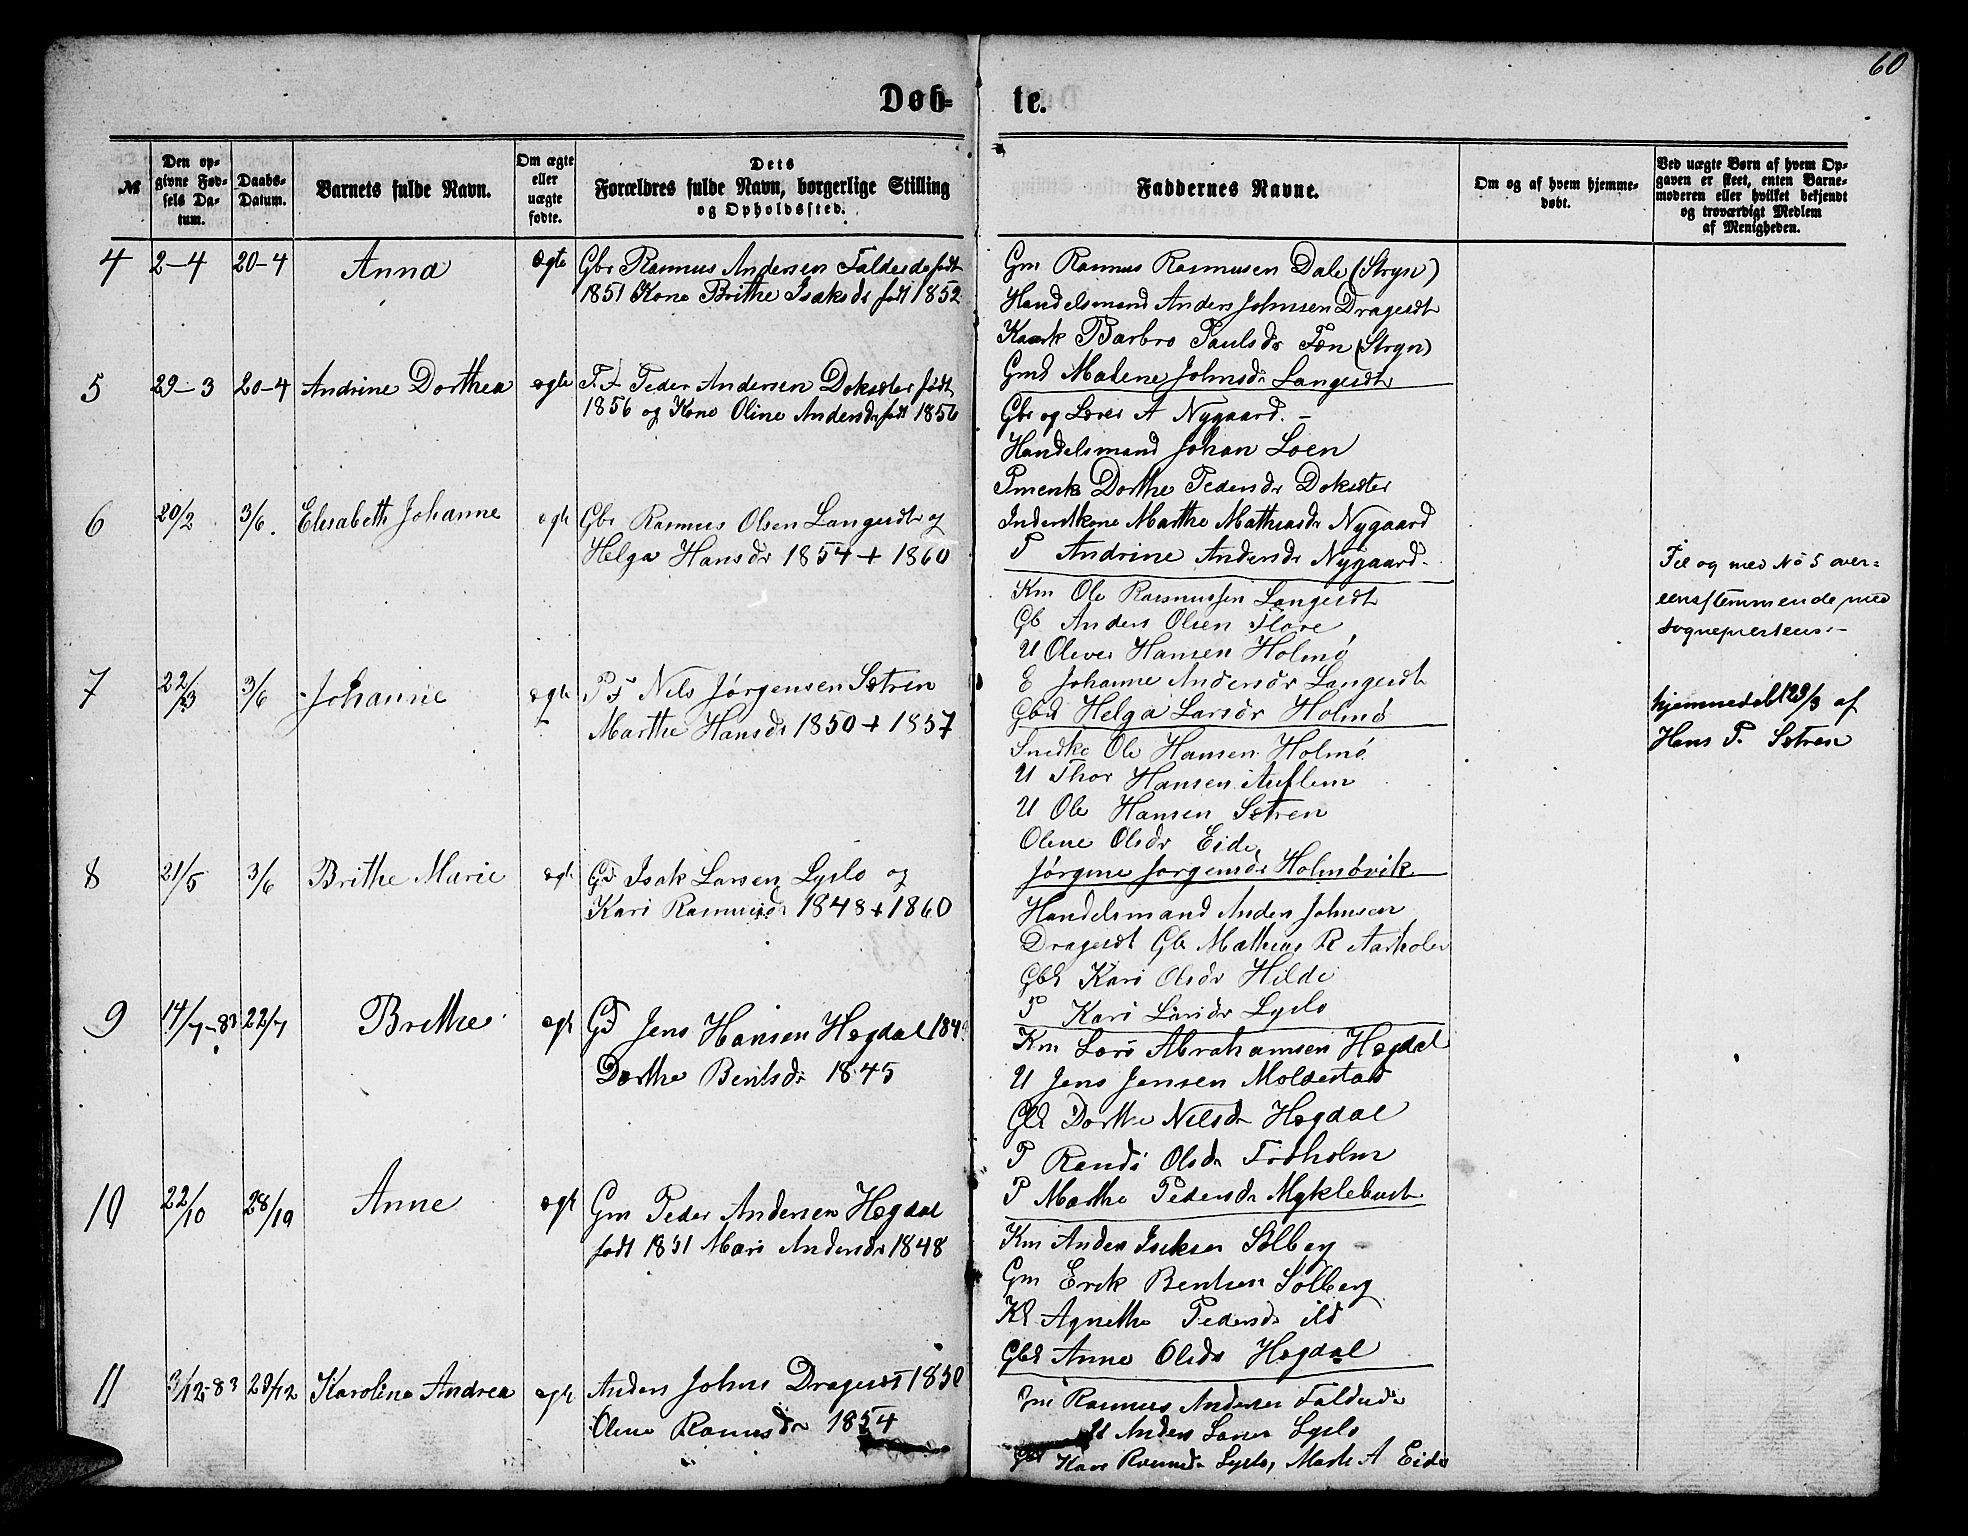 60
Døb- te.
№
Den op-
givne Fød-
sels Da-
tum.
Daabs-
Datum.
Barnets fulde Navn.
Om ægte
eller
uægte
fødte.
Dets
Forældres fulde Navn, borgerlige Stilling
og Opholdssted.
Faddernes Navne.
Om og af hvem hjemme-
døbt.
Ved uægte Børn af hvem Op-
gaven er skeet, enten Barne-
moderen eller hvilket bekjendt
og troværdigt Medlem
af Menigheden.
4 2-4 20-4 Anna ægte Gbr Rasmus Andersen født
1851 Kone Brithe Isaksdr født 1852
Gm Rasmus Rasmusen Dale (Stryn)
Handelsmand Anders Johnsen Dragesdt
Barbro Paulsdr (Stryn)
Malene Johnsdr Langesdt
5 29-3 20-4 Andrine Dorthea ægte Peder Andersen født
1856 og Kone Oline Andersdr født 1856
Gbr og Lærer A Nygaard.
Handelsmand Johan Loen
Dorthe Pedersdr
Marthe Mathiasdr Nygaard
P Andrine Andersdr Nygaard.
6 20/2 3/6. Elisabeth Johanne ægte Gbr Rasmus Olsen Langesdt og
Helga Hansdr 1854 + 1860
Km Ole Rasmussen Langesdt
Gb Anders Olsen Flore
U Oliver Hansen Holmø
E Johanne Andersdr Langesdt
Gbd Helga Larsdr Holmø
Til og med No 5 over-
eensstemmende med
sogneprestens.-
7 22/3 3/6 Johanne ægte P F Nils Jørgensen Sætren
Marthe Hansdr 1850 + 1857
Ole Hansen Holmø
U Thor Hansen Auflem
U Ole Hansen Sætren
Oline Olsdr Eide
Jørgine Jørgensdr Holmøvik
hjemmedøbt 29/3 af
Hans P. Sætren
8 21/5 3/6 Brithe Marie ægt Isak Larsen Lyslo og
Kari Rasmusdr 1848 + 1860
Handelsmand Anders Johnsen
Dragesdt Gbr Mathias R Aarholen
Gbd Kari Olsdr Hilde
P Kari Larsdr Lyslo
9 14/7-83 22/7 Brithe ægt Jens Hansen Hegdal
Dorthe Bentsdr 1845
Km Lars Abrahamsen Hegdal
U Jens Jensen Moldestad
Gbd Dorthe Nilsdr Hegdal
P Randi Olsdr Froholm
P Marthe Pedersdr Myklebust
10 22/10 28/10 Anne ægt Gm Peder Andersen Hegdal
født 1851 Mari Andersdr 1848
Km Anders Solberg
Gm Erik Bentsen Solberg
Kd Agnethe Pedersdr ibd
Gbd Anne Olsdr Hegdal
11 3/12-83 29/12 Karoline Andrea ægt Anders Johns Dragesdt 1850
Oline Rasmusdr 1854
Gm Rasmus Andersen
U Anders Larsen Lyslo
Kari Rasmusdr Lyslo, A Eide